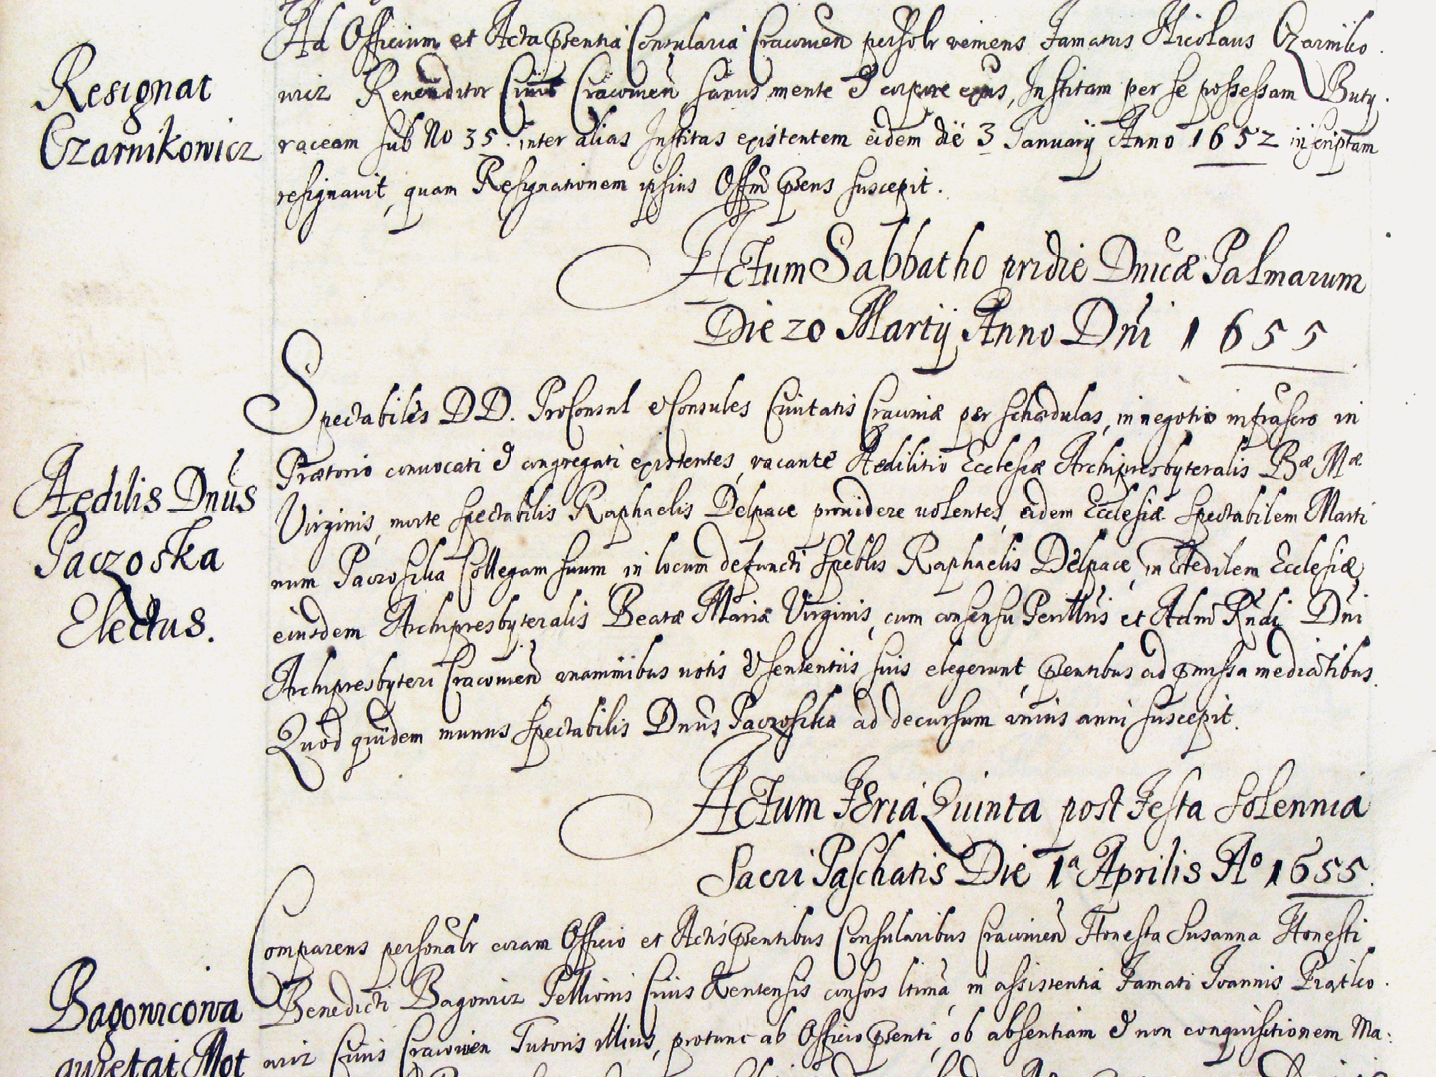 Ad Officium et Acta pñtia Consularia Cracovieñ persoñlr veniens Famatus Nicolaus Czarniko
Resignat
Czarnikowicz
wicz Renenditor Civis Cracovieñ sanus mente et corpore ejus, Institam per se possessam Buty
raceam sub No 35. inter alias Institas existentem eidem die 3 January Anno 1652 inscriptam
resignavit, quam Resignationem ipsius Offm pñs suscepit.
Actum Sabbatho pridie Dnicæ Palmarum
Die 20 Martij Anno Dñi 1655
Spectabiles DD. ProConsul et Consules Civitatis Cracoviæ per schædulas, in negotio infrascro in
Prætorio convocati et congregati existentes, vacante Aedilitio Ecclesiæ Archipresbyteralis Bæ Mæ
Aedilis Dnus
Paczoska
Electus.
Virginis, morte spectabilis Raphaelis Delpace providere volentes, eidem Ecclesiæ Spectabilem Marti
num Paczoska Collegam suum, in locum defuncti Spẽblis Raphaelis Delpace, in Aedilem Ecclesiæ
eiusdem Archipresbyteralis Beatæ Mariæ Virginis, cum consensu Perillris et Adm Rñdi Dni
Archipresbyteri Cracovieñ unanimibus votis et sententiis suis elegerunt, pñtibus ad pmissa mediañtibus.
Quod quidem munus spectabilis Dnus Paczoska ad decursum unius anni suscepit.
Actum Feria Quinta post Festa Solennia
Sacri Paschatis Die 1ª Aprilis Aº 1655.
Comparens personalr coram Officio et Actis pñtibus Consularibus Cracovieñ Honesta Susanna Honesti
Bagowicowa
quietat Mot
Benedicti Bagowicz Pellionis Civis consors ltima, in assistentia Famati Joannis
Civis Cracovien Tutoris illius, protunc ab Officio pñti, ob absentiam et non conquisitionem Ma: